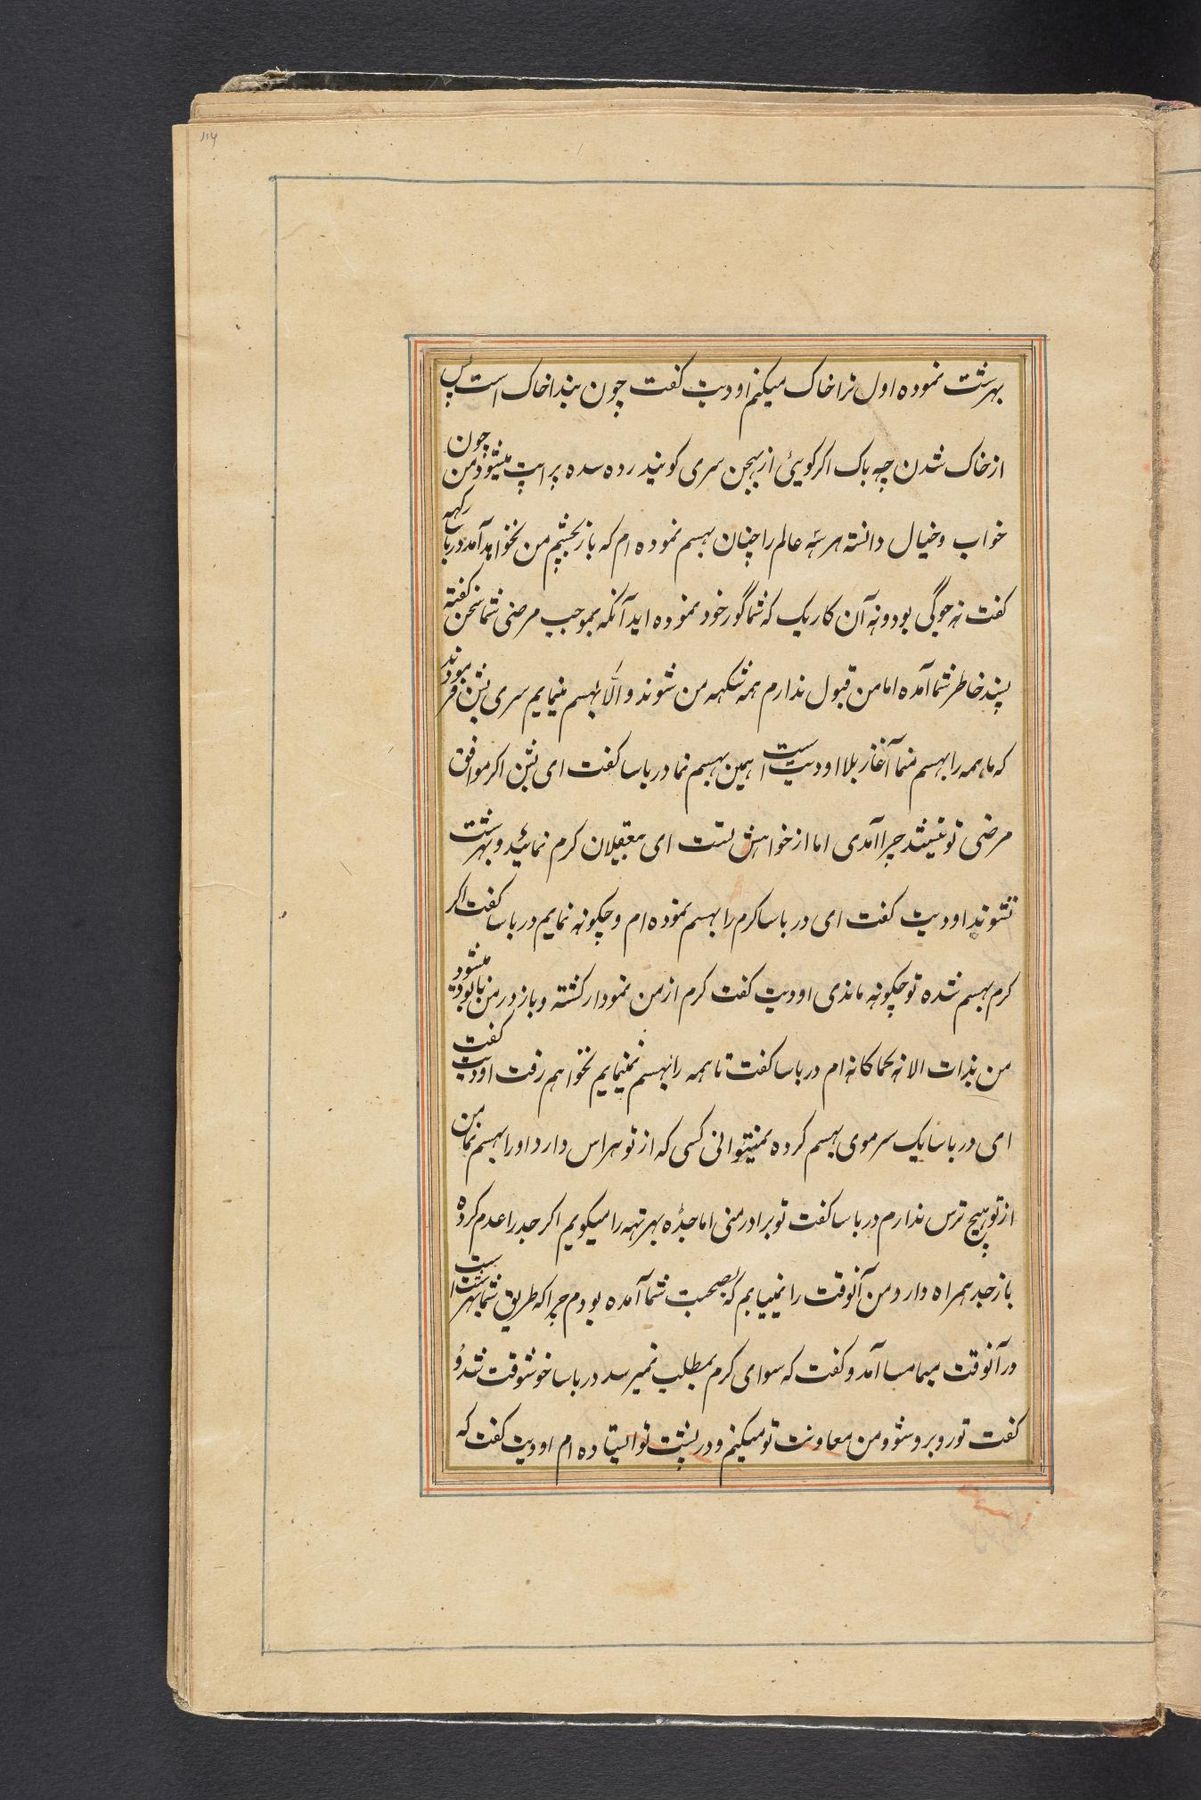 بهرشت نموده اول ترا خاک میکنم اودیت گفت چون پندا خاک است پس
از خاک شدن چه باک اگر گویئ از بهچن سری گوبند رده سده پراپت میشود من چون
خواب و خیال دانسته هر سه عالم را چنان بهسم نموده ام که باز بچشم من نخواهد آمد در باسا
گفت نه جوگی بود و نه آن کاریک که شما گور خود نموده اید آنکه بموجب مرضی شما سخن گفته
پسند خاطر شما آمده اما من قبول ندارم همه سکهه من شوند و الا بهسم مینمایم سری بشن فرمودند
که ما همه را بهسم منما آغاز بلا اودیت است همین بهسم نما در باسا گفت ای بشن اگر موافق
مرضی تو نمیشد چرا آمدی اما از خواهش تست ای معقیلان کرم نمائید و بهرشت
نشوند اودیت گفت ای در باسا کرم را بهسم نموده ام و چگونه نمایم در باسا گفت اگر
کرم بهسم شده تو چگونه ماندی اودیت گفت کرم از من نمودار گشته و باز در من نابود میشود
من بذات الانه کماکانه ام در باسا گفت تا همه را بهسم نمینمایم نخواهم رفت اودیت گفت
ای در باسا یک سر موی بهسم کرده نمیتوانی کسی که از تو هراس دارد او را بهسم نما من
از تو هیچ ترس ندارم در باسا گفت تو برادر منی اما جده بهرتهه را میگویم اگر جد را عدم کرده
باز جد همراه دارد من آنوقت را نمییابم که بصحبت شما آمده بودم چرا که طریق شما بهرشت است
در آنوقت میمامسا آمد و گفت که سوای کرم بمطلب نمیرسد در باسا خوشوقت شد و
گفت تو روبرو شو و من معاونت تو میکنم و در پشت تو ایستاده ام اودیت گفت که